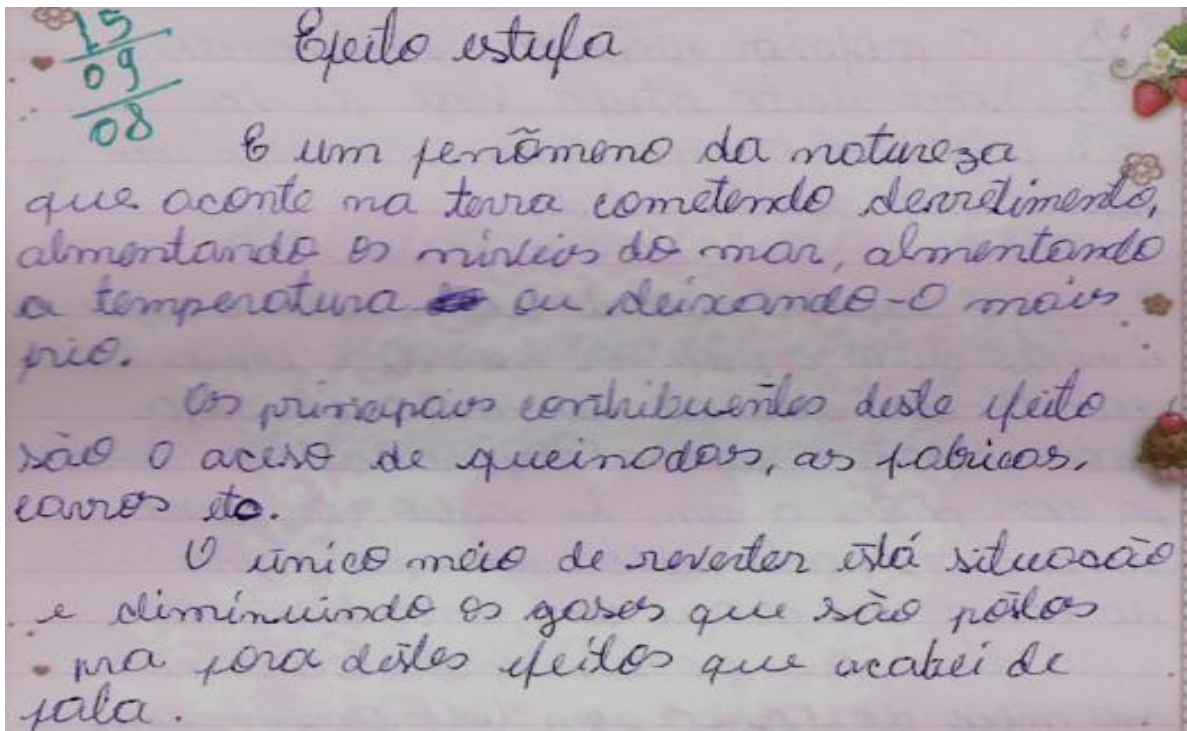 15
09
08
Efeito estufa
E um fenômeno da natureza
que aconte na terra cometendo derretimento,
almentando os nívieis do mar, almentando
a temperatura ou deixando-o mais
frio.
Os principais contribuentes deste efeito
são o aceso de queinadas, as fabricas,
carros etc.
O único meio de reverter está situacão
e diminuindo os gases que são postos
pra fora destes efeitos que acabei de
fala.